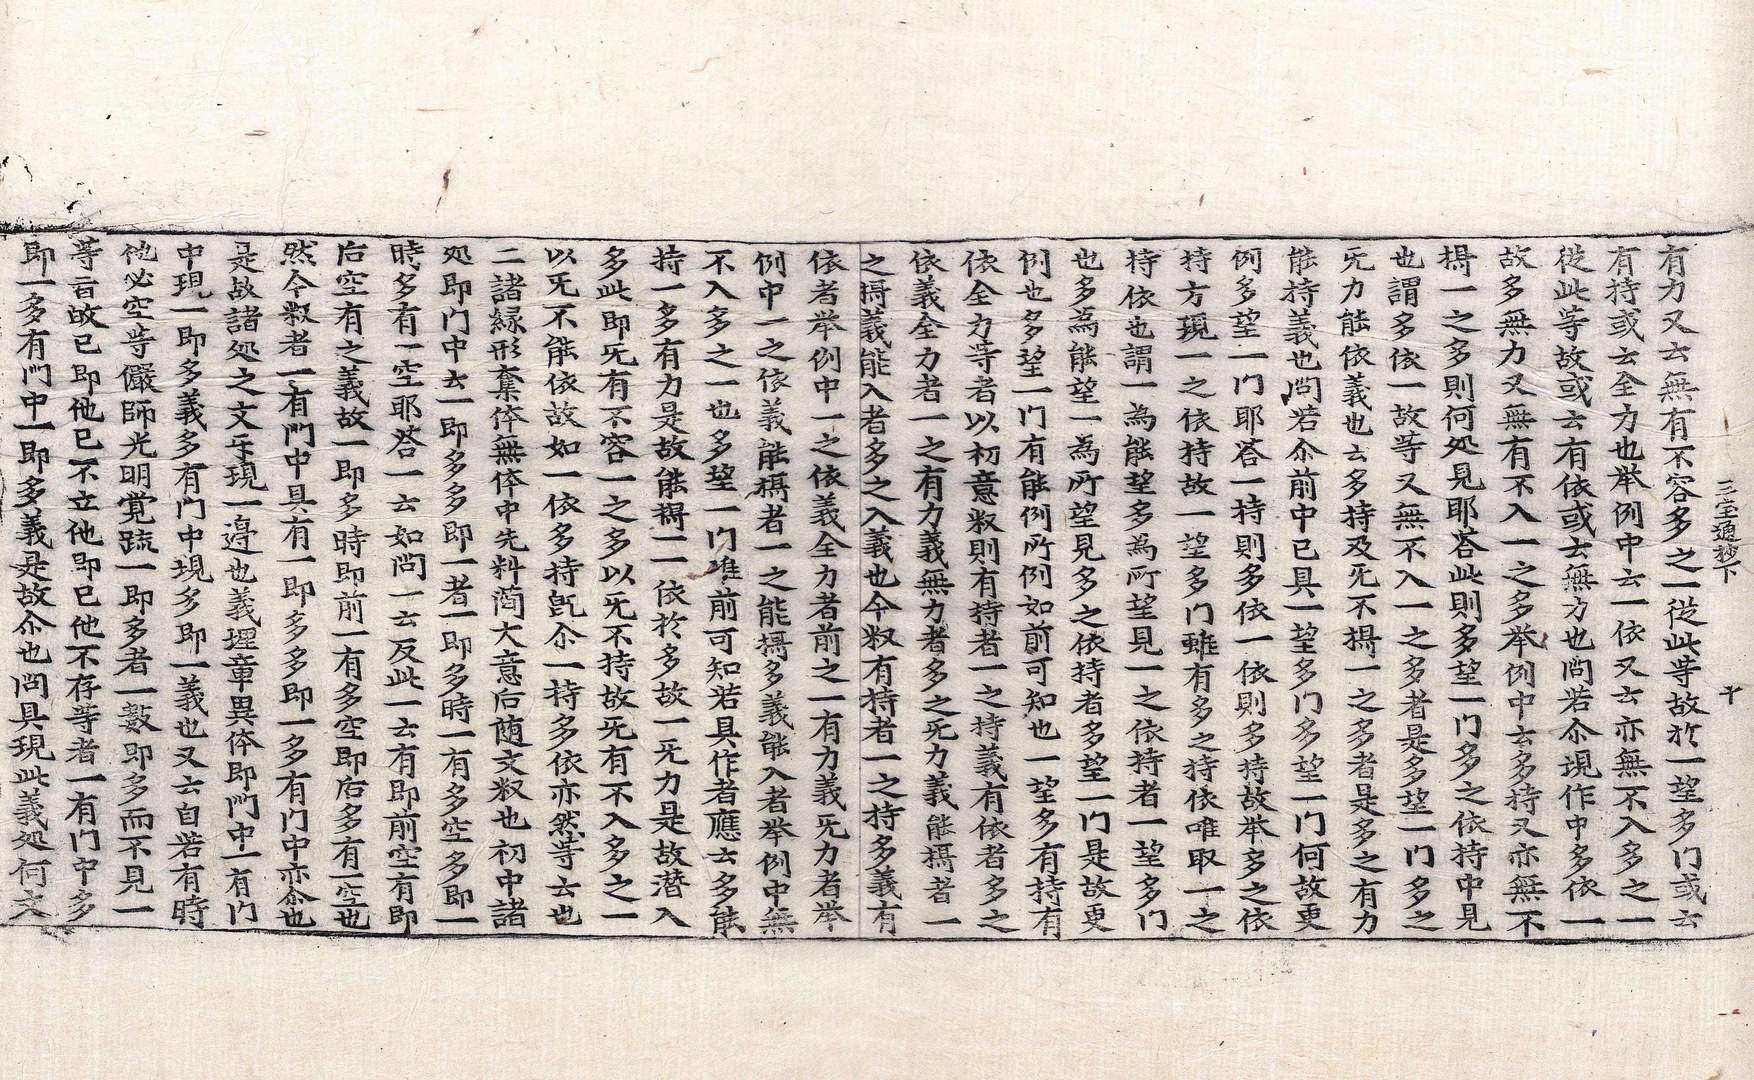 三宝通抄下　十
有力又去無有不容多之一從此等故於一望多门或云
有持或云全力也举例中云一依又云亦無不入多之一
從此等故或云有依或云無力也问若尒現作中多依一
故多無力又無有不入一之多举例中云多持又亦無不
攝一之多則何処見耶荅此則多望一门多之依持中見
也謂多依一故等又無不入一之多者是多望一门多之
无力能依義也云多持及无不攝一之多者是多之有力
能持義也问若尒前中已具一望多门多望一门何故更
例多望一门耶荅一持則多依一依則多持故举多之依
持方現一之依持故一望多门雖有多之持依唯取一之
持依也謂一為能望多為所望見一之依持者一望多门
也多為能望一為所望見多之依持者多望一门是故更
例也多望一门有能例所例如前可知也一望多有持有
依全力等者以初意叙則有持者一之持義有依者多之
依義全力者一之有力義無力者多之无力義能攝者一
之攝義能入者多之入義也今叙有持者一之持多義有
依者举例中一之依義全力者前之一有力義无力者举
例中一之依義能攝者一之能攝多義能入者举例中無
不入多之一也多望一门准前可知若具作者應云多能
持一多有力是故能攝一一依於多故一无力是故潜入
多此即无有不容一之多以无不持故无有不入多之一
以无不能依故如一依多持旣尒一持多依亦然等云也
二諸縁形奪体無体中先料蕳大意后随文叙也初中諸
処即门中云一即多多即一者一即多時一有多空多即一
時多有一空耶荅一云如问一云反此一云有即前空有即
后空有之義故一即多時即前一有多空即后多有一空也
然今叙者一有門中具有一即多多即一多有门中亦尒也
是故諸処之文示現一邊也義理章異体即門中一有门
中現一即多義多有门中現多即一義也又云自若有時
他必空等儼師光明覚䟽一即多者一數即多而不見一
等盲故已即他已不立他即已他不存等者一有门中多
即一多有門中一即多義是故尒也问具現此義処何文